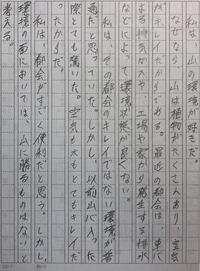 私は、山の環境が好きだ。
なぜなら、山は植物がたくさんあり、空気
がキレイだからである。最近の都会は、車に
よる排気ガスや、工場や家から発生する排水
などによって環境状態が良くない。
私は、その都会のキレイではない環境が普
通だと思っていた。しかし、以前山へ入った
際とても驚いた。空気も水もとてもキレイだ
ったからだ。
私は、都会がすごく便利だと思う。しかし、
環境の面においては、山に勝るものはないと
考える。